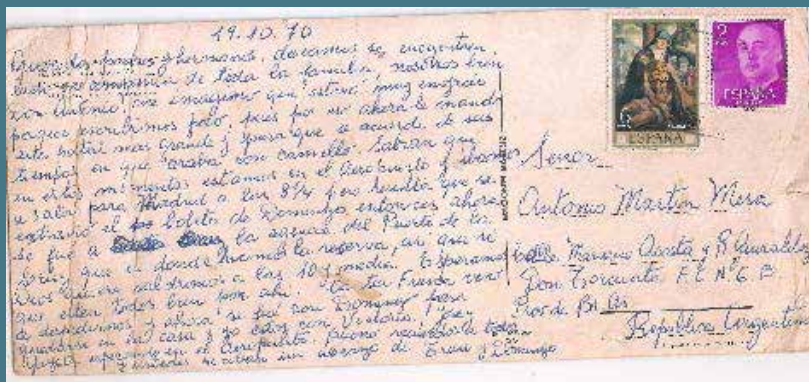 19.10.70
Queridos papas y hermanos, deseamos se encuentren
bien en compañia de toda la familia, nosotros bien
Don Antonio me imagino que estará muy enojado
porque escribimos poco, pues por eso ahora le mando
esta postal mas grande y para que se acuerde de sus
tiempos en que araba con camello. Sabran que
en estos momentos estamos en el Aeropuerto y ibamos
a salir para Madrid a las 8¼ pero resulta que se
el boleto de Domingo entonces ahora
se fue a la agencia del Puerto de la
Cruz que es donde hicimos la reserva, asi que si
Dios quiere saldremos a las 10 y media. Esperamos
que esten todos bien por ahi. La tia Frenda vino
a despedirnos y ahora se fue con Domingo para
quedarse en su casa y yo estoy con Victoria, Pipo y
esperando en el Aeropuerto. Bueno recuerdos a todos
y ustedes reciban un abrazo de Fran y Domingo
ESPAÑA
2
PTAS
ESPAÑA
Señor
Antonio Martin Mesa
Calle Mariano Acosta y R
Don Torcuato F.C. Nº 6 B
Prov de Bs As
Republica Argentina